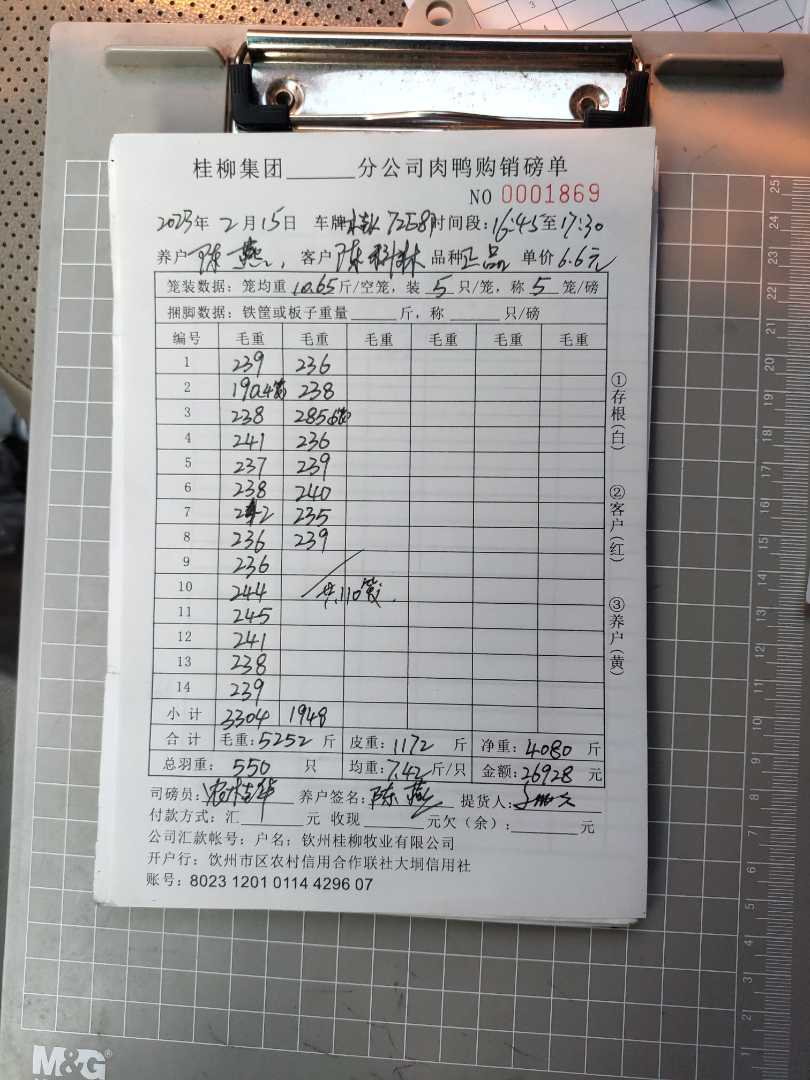 桂柳集团______分公司肉鸭购销磅单
NO 0001869
2023年 2月15日 车牌 7258 时间段:16:45至17:30
养户 陈燕 客户 陈科林 品种 正品 单价 6.6元
笼装数据: 笼均重 10.65 斤/空笼, 装 5 只/笼, 称 5 笼/磅
捆脚数据: 铁筐或板子重量______斤, 称______只/磅
编号 毛重 毛重 毛重 毛重 毛重 毛重
1 239 236
2 190.4笼 238
3 238 285.6笼
4 241 236
5 237 239
6 238 240
7 242 235
8 236 239
9 236
10 244 共110笼
11 245
12 241
13 238
14 239
小计 3304 1948
合计 毛重:5252 斤 皮重:1172 斤 净重:4080 斤
总羽重: 550 只 均重:7.42斤/只 金额:26928 元
司磅员: 养户签名: 陈燕 提货人:
付款方式: 汇______元 收现______元欠(余):______元
公司汇款帐号: 户名: 钦州桂柳牧业有限公司
开户行: 钦州市区农村信用合作联社大垌信用社
账号: 8023 1201 0114 4296 07
①存根(白)
②客户(红)
③养户(黄)
M&G
25
24
23
22
21
20
19
18
17
16
15
14
13
12
11
10
9
8
7
6
5
4
3
2
1